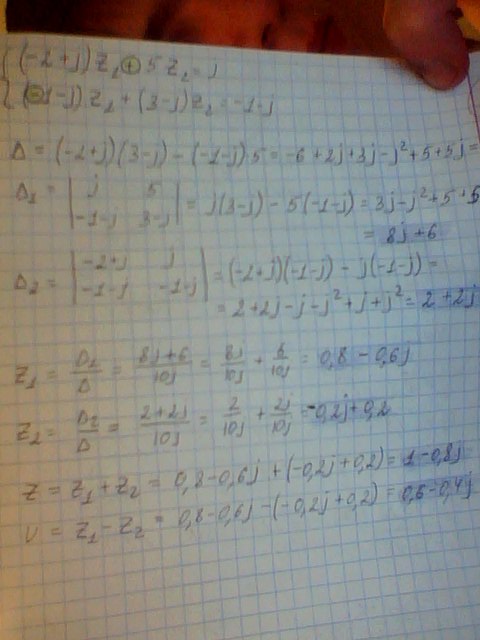 { (-2+j) z₁ ⊕ 5 z₂ = j
(⊖1-j) z₁ + (3-j) z₂ = -1-j
Δ = (-2+j)(3-j) - (-1-j) 5 = -6 + 2j + 3j - j² + 5 + 5j =
Δ₁ = | j 5 | = j(3-j) - 5(-1-j) = 3j - j² + 5 + 5
| -1-j 3-j | = 8j + 6
Δ₂ = | -2+j j | = (-2+j)(-1-j) - j(-1-j) =
| -1-j -1-j | = 2 + 2j - j - j² + j + j² = 2 + 2j
z₁ = Δ₁/Δ = (8j+6)/10j = 8j/10j + 6/10j = 0,8 - 0,6j
z₂ = Δ₂/Δ = (2+2j)/10j = 2/10j + 2j/10j = -0,2j + 0,2
z = z₁ + z₂ = 0,8 - 0,6j + (-0,2j + 0,2) = 1 - 0,8j
u = z₁ - z₂ = 0,8 - 0,6j - (-0,2j + 0,2) = 0,6 - 0,4j